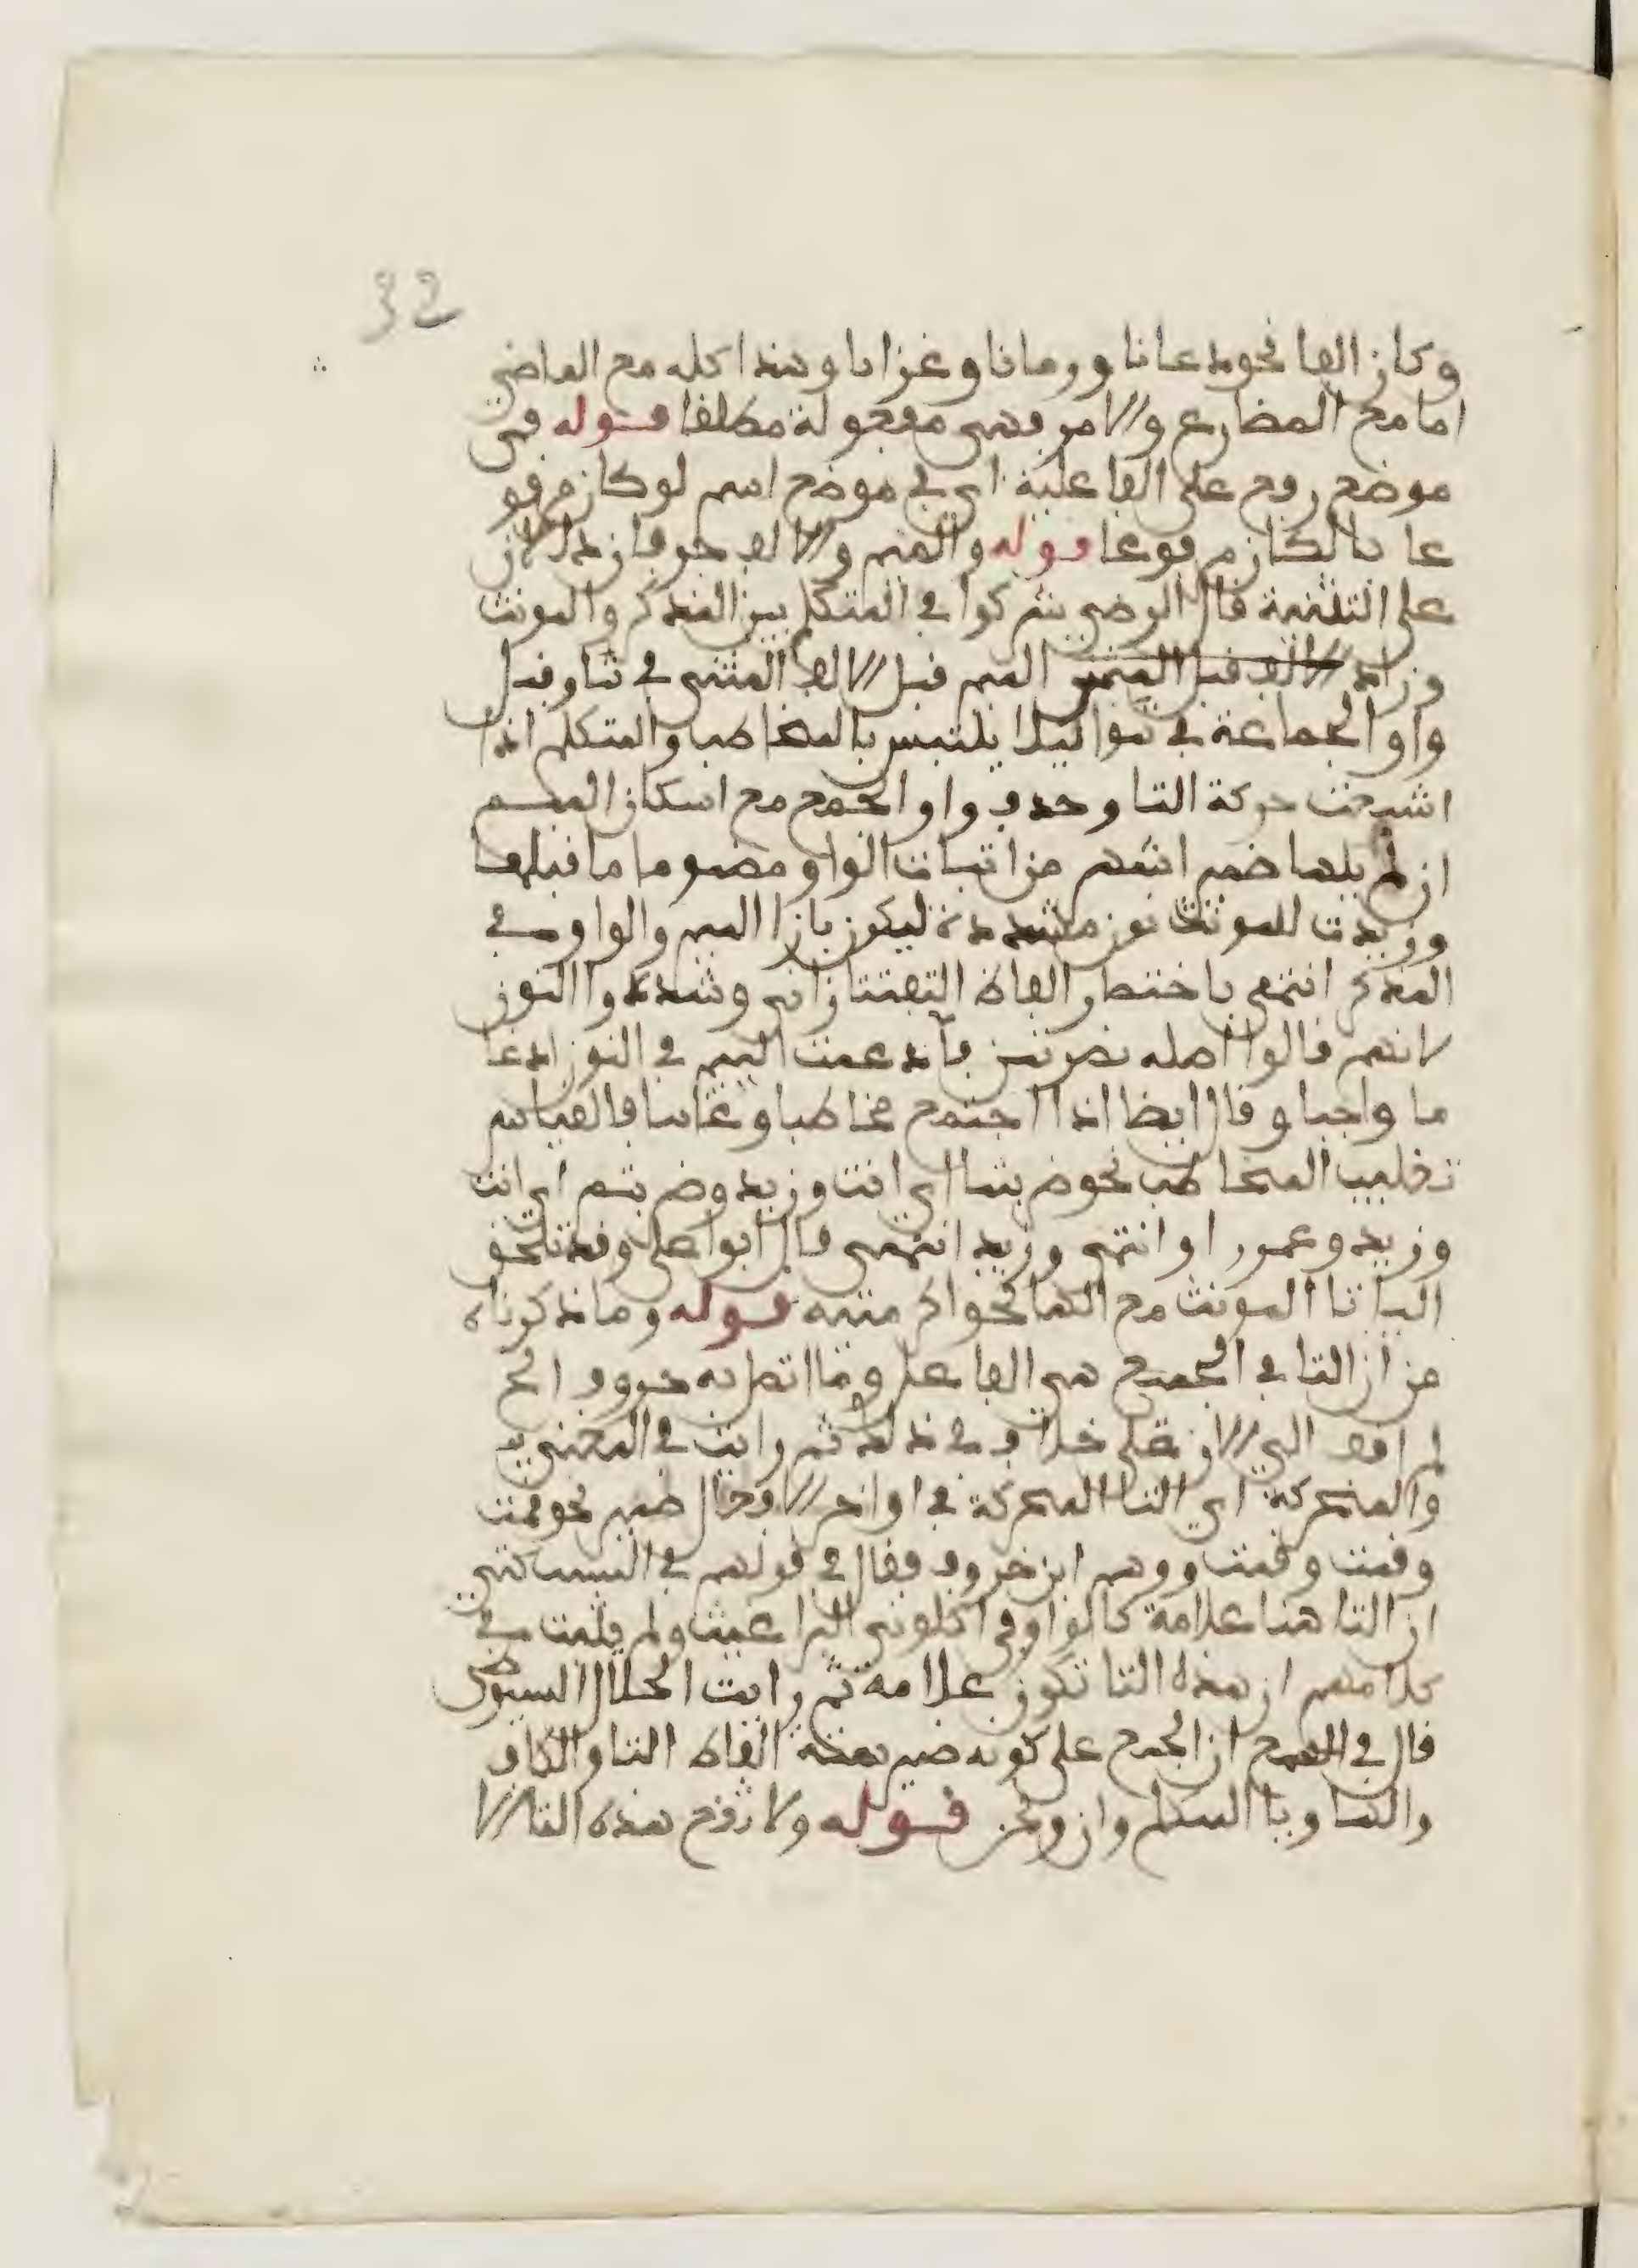 32
وكان الفا نحو دعانا ورمانا وغزانا وهذا كله مع الماضي
اما مع المضارع والامر فهي مفعولة مطلقا قوله في
موضع رفع على الفاعلية اي في موضع اسم لو كان مرفو
عا لكان مرفوعا قوله والميم والالف حرفان دالان
على التثنية قال الرضي شركوا في المتكلم بين المذكر والمونث
وزاد الالف قبل الميم الميم قبل الالف المثنى في تما وقبل
واو الجماعة في تموا ليلا يلتبس بالمخاطب والمتكلم اذا
اشبعت حركة التا وحذف واو الجمع مع اسكان الميم
ان لم يلها ضمير اشهر من اثبات الواو مضموما ما قبلها
وزيدت للمونث نون مشددة ليكون بازا الميم والواو في
المذكر انتهى باختصار الفاظ التفتازاني وشددوا النون
لانهم قالوا اصله نصرتمن فادغمت الميم في النون ادغا
ما واجبا وقال ايضا اذا اجتمع مخاطب وغايب فالقياس
تغليب المخاطب نحو ضربتما اي انت وزيد وضربتم اي انت
وزيد وعمرو او انتما وزيد انتهى قال ابو على وقد تلحق
اليا تا المونث مع الها نحو اكرمتيه قوله وما ذكرناه
من ان التا في الجميع هي الفاعل وما اتصل به حروف الخ
لم اقف الى الان على خلاف في ذلك ثم رايت في المغني
والمتحركة اي التا المتحركة في اواخر الافعال ضمير نحو قمت
وقمت وقمت ووهم ابن خروف فقال في قولهم في النسب كنتي
ان التا هنا علامة كالواو في اكلوني البراغيث ولم يثبت في
كلامهم ان هذه التا تكون علامة ثم رايت الجلال السيوطي
قال في الهمع ان المجمع على كونه ضمير خمسة الفاظ التا والكاف
والها ويا المتكلم وان ونحن قوله ولا ترفع هذه التا الا